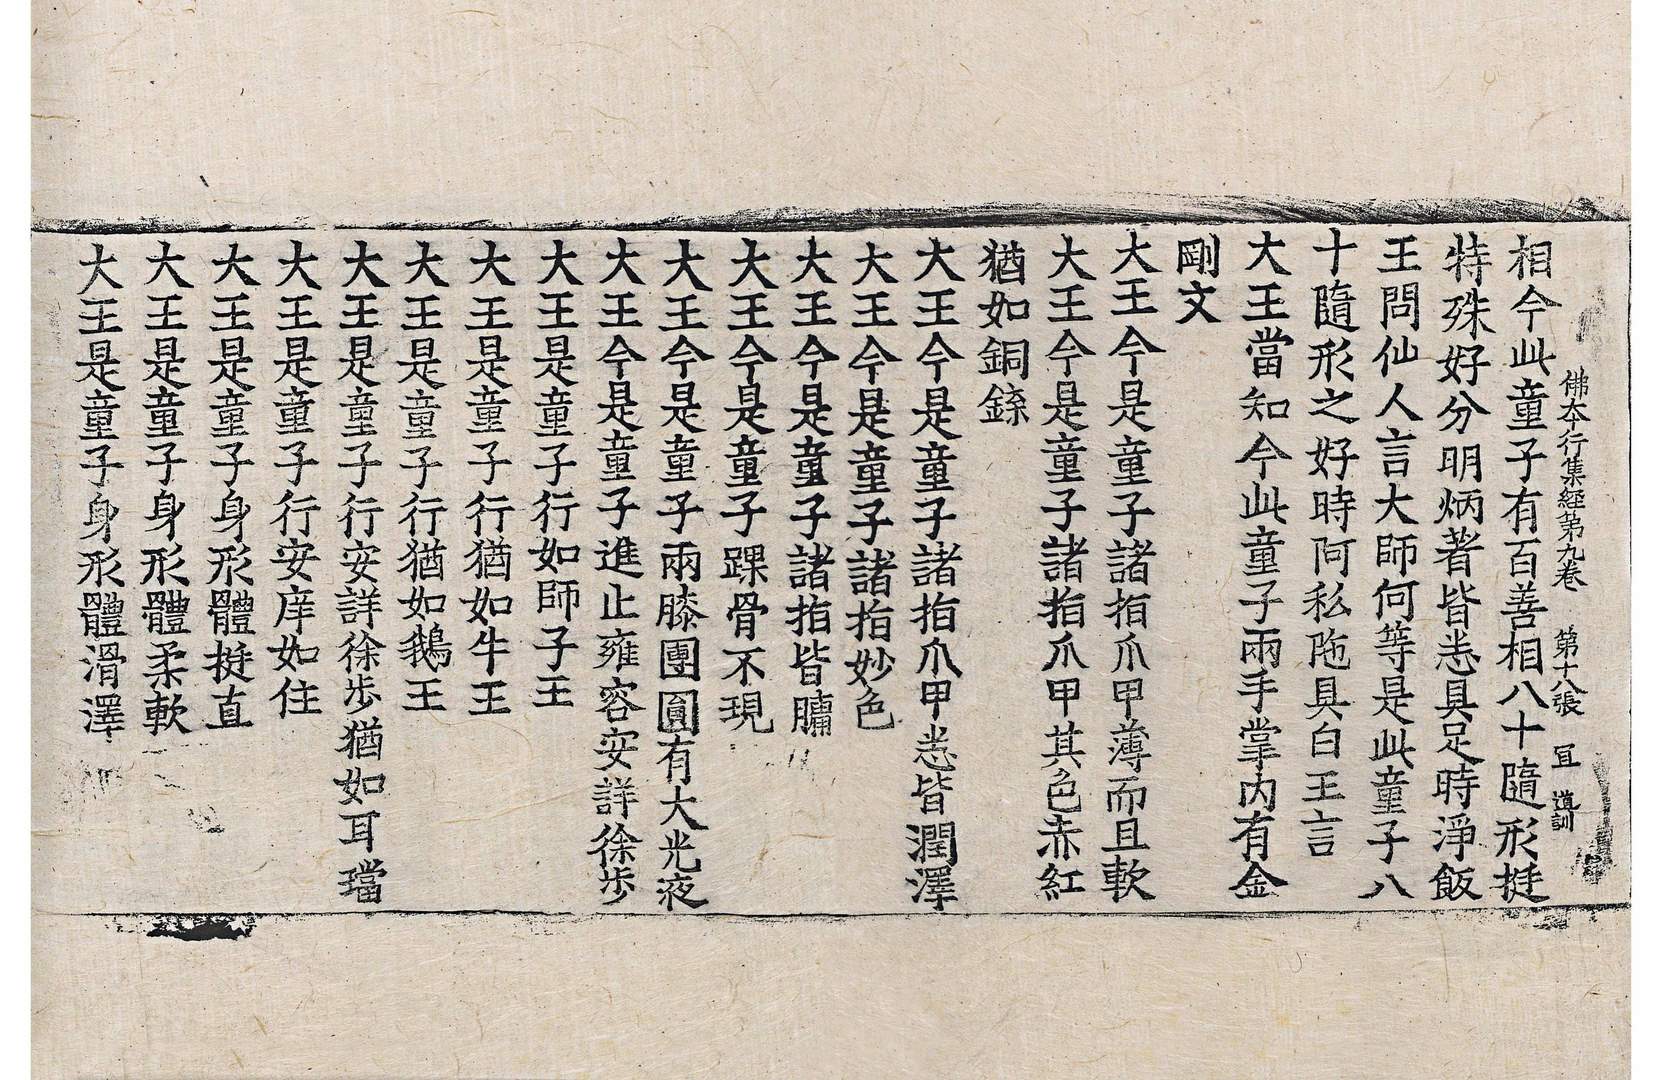 佛本行集經第九卷 第十八張 冝 道訓
相今此童子有百善相八十隨形挺
特殊好分明炳著皆悉具足時淨飯
王問仙人言大師何等是此童子八
十隨形之好時阿私陁具白王言
大王當知今此童子兩手掌内有金
剛文
大王今是童子諸指爪甲薄而且軟
大王今是童子諸指爪甲其色赤紅
猶如銅鍒
大王今是童子諸指爪甲悉皆潤澤
大王今是童子諸指妙色
大王今是童子諸指皆𦟛
大王今是童子踝骨不現
大王今是童子兩膝團圓有大光液
大王今是童子進止雍容安詳徐步
大王是童子行如師子王
大王是童子行猶如牛王
大王是童子行猶如鵝王
大王是童子行安詳徐步猶如耳璫
大王是童子行安庠如住
大王是童子身形體挺直
大王是童子身形體柔軟
大王是童子身形體滑澤